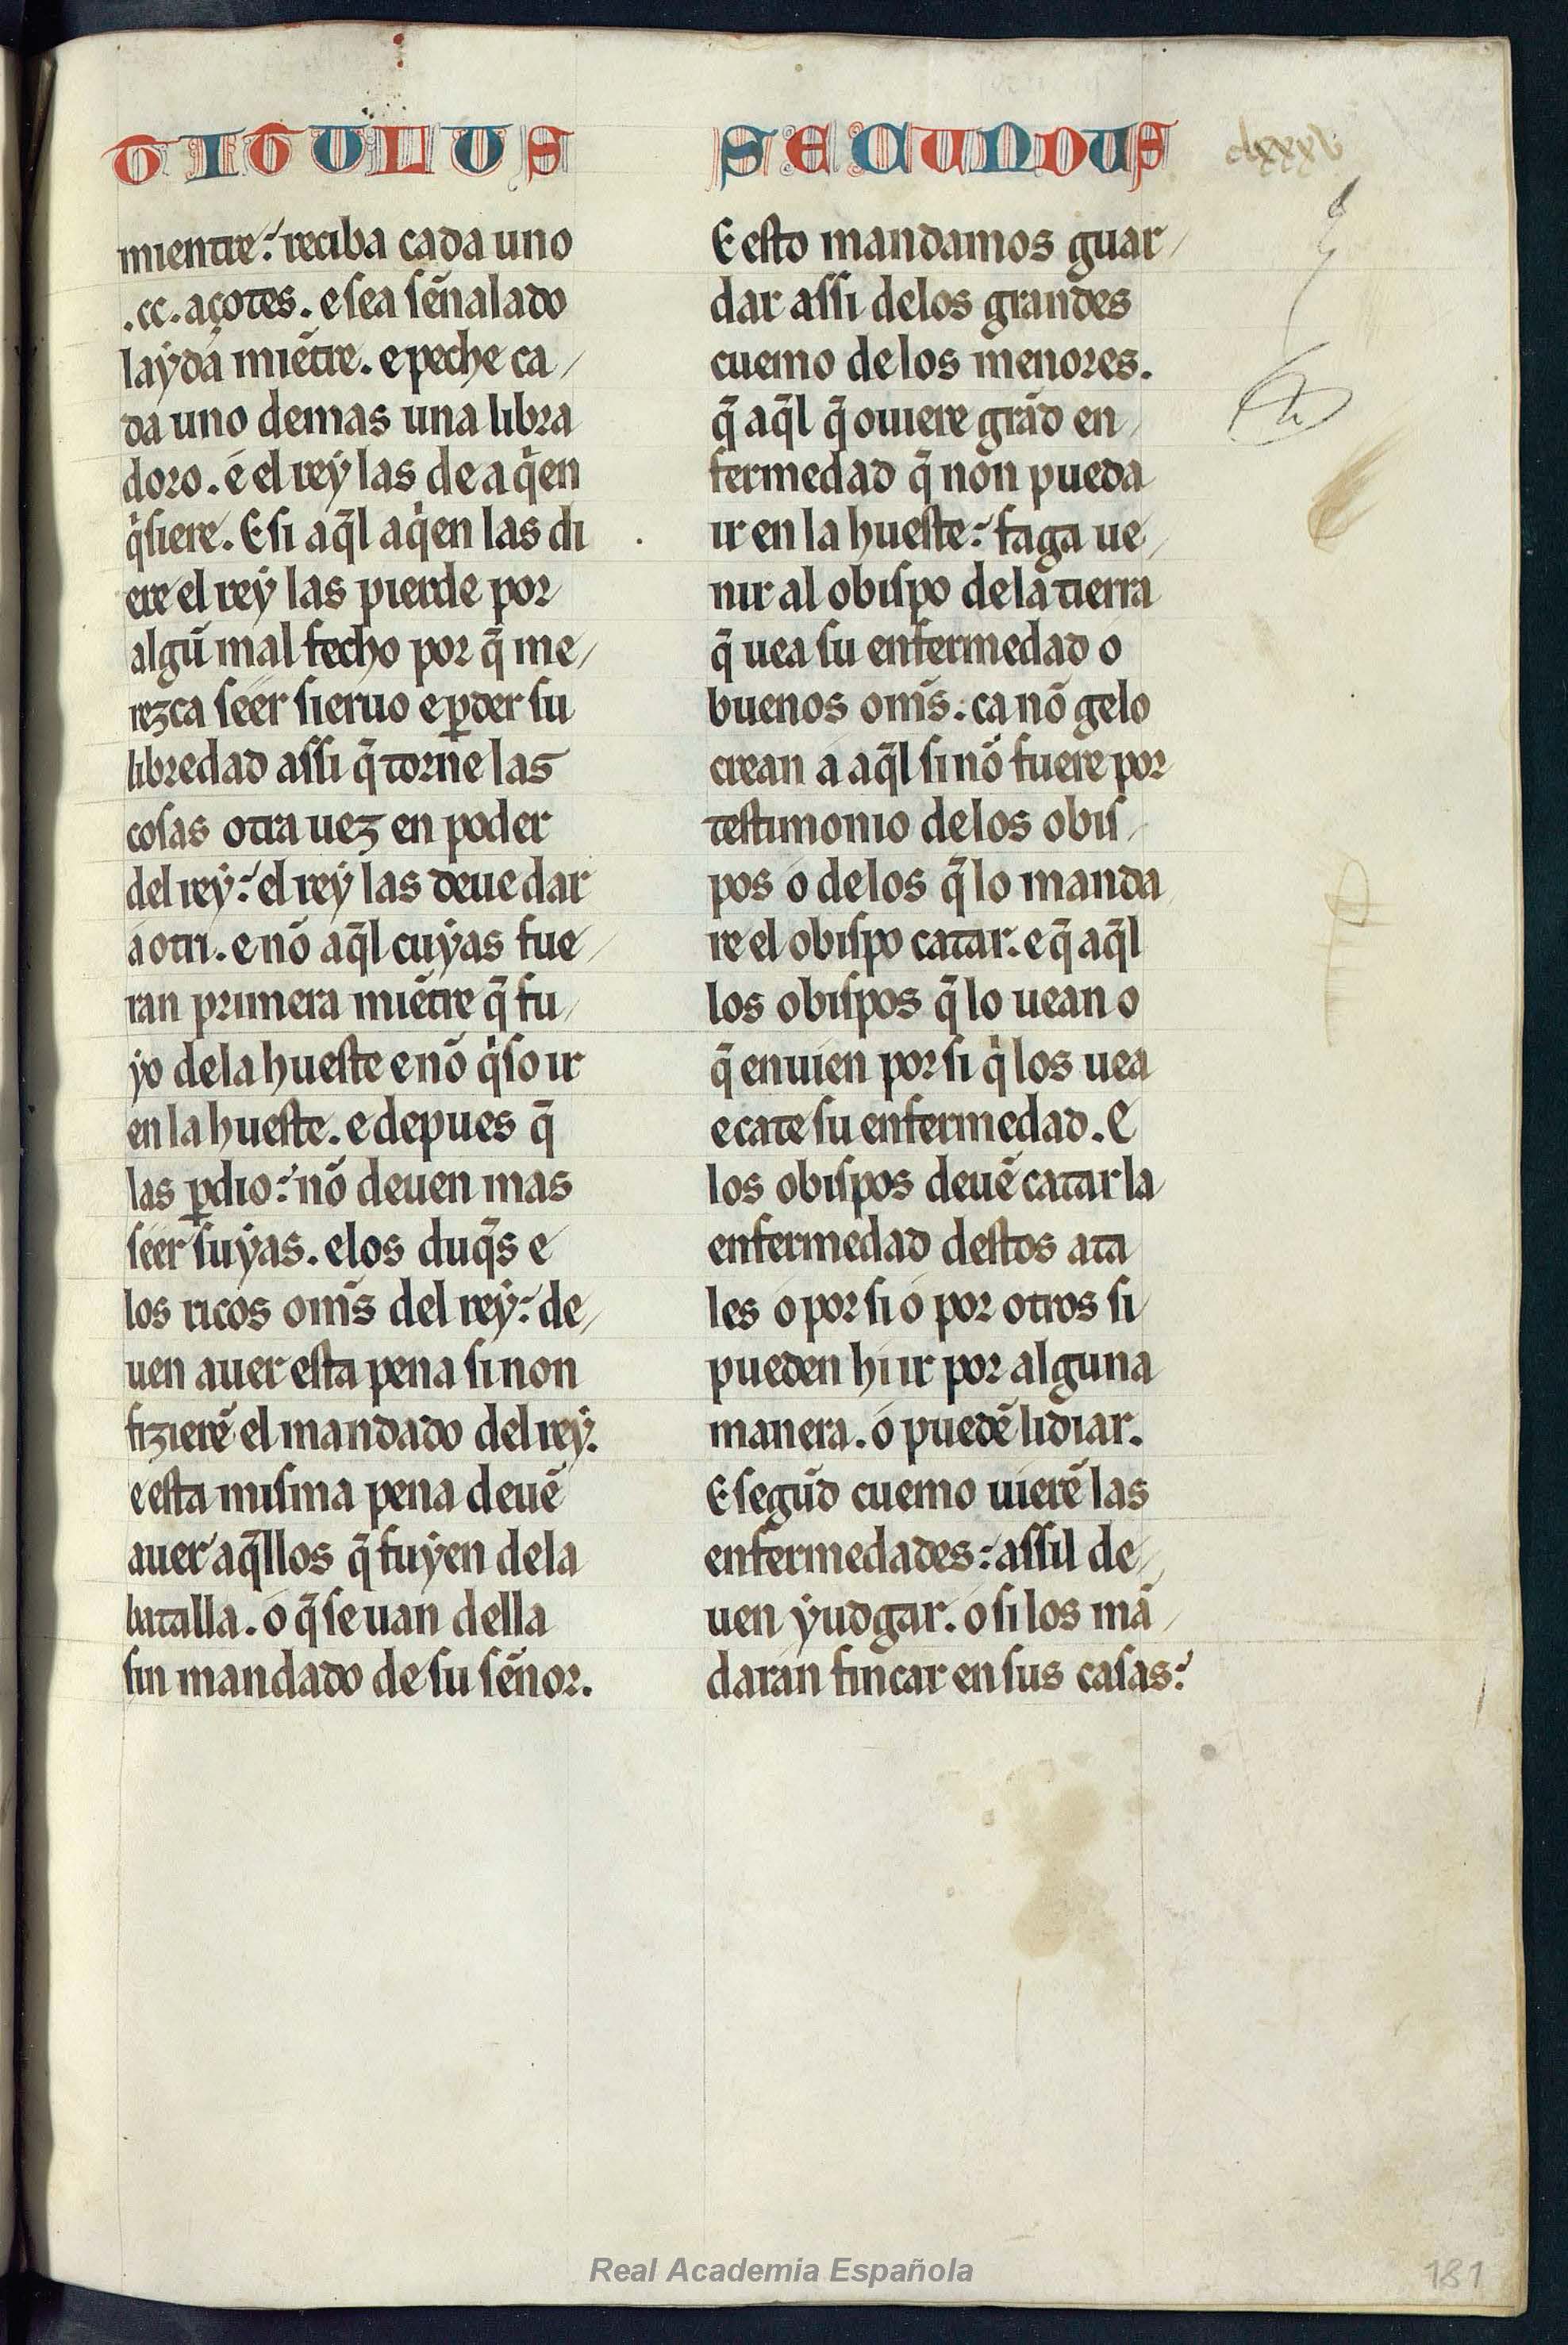 TITULUS SECUNDUS
clxxxv
mientre: reciba cada uno
.cc. açotes. e sea sẽnalado
laẏda miẽtre. e peche ca/
da uno demas una libra
doro. é el reẏ las de a qͥen
qͥsiere. E si aq̃l aqͥen las di
ere el reẏ las pierde por
algũ mal fecho por q̃ me/
rezca seer sieruo e ꝑder su
libredad assi q̃ torne las
cosas otra uez en poder
del reẏ: el reẏ las deue dar
a otri. e nõ aq̃l cuẏas fue/
ran primera miẽtre q̃ fu/
ẏo dela hueste e nõ qͥso ir
en la hueste. e depues q̃
las ꝑdio: nõ deuen mas
seer suẏas. e los duq̃s e
los ricos om̃s del reẏ: de/
uen auer esta pena si non
fizierẽ el mandado del reẏ.
e esta misma pena deuẽ
auer aq̃llos q̃ fuẏen dela
batalla. o q̃ se uan della
sin mandado de su sẽnor.
E esto mandamos guar/
dar assi delos grandes
cuemo delos menores.
q̃ aq̃l q̃ ouiere grãd en/
fermedad q̃ non pueda
ir en la hueste: faga ue/
nir al obispo dela tierra
q̃ uea su enfermedad o
buenos om̃s: ca nõ gelo
crean a aq̃l si nõ fuere por
testimonio delos obis/
pos o delos q̃ lo manda
re el obispo catar: e q̃ aq̃l
los obispos q̃ lo uean o
q̃ enuien por si qͥ los uea
e cate su enfermedad. E
los obispos deuẽ catar la
enfermedad destos ata
les o por si o por otros si
pueden hi ir por alguna
manera. o puedẽ lidiar.
E segũd cuemo uierẽ las
enfermedades: assil de/
uen ẏudgar. o si los mã/
daran fincar en sus casas:
Real Academia Española
181